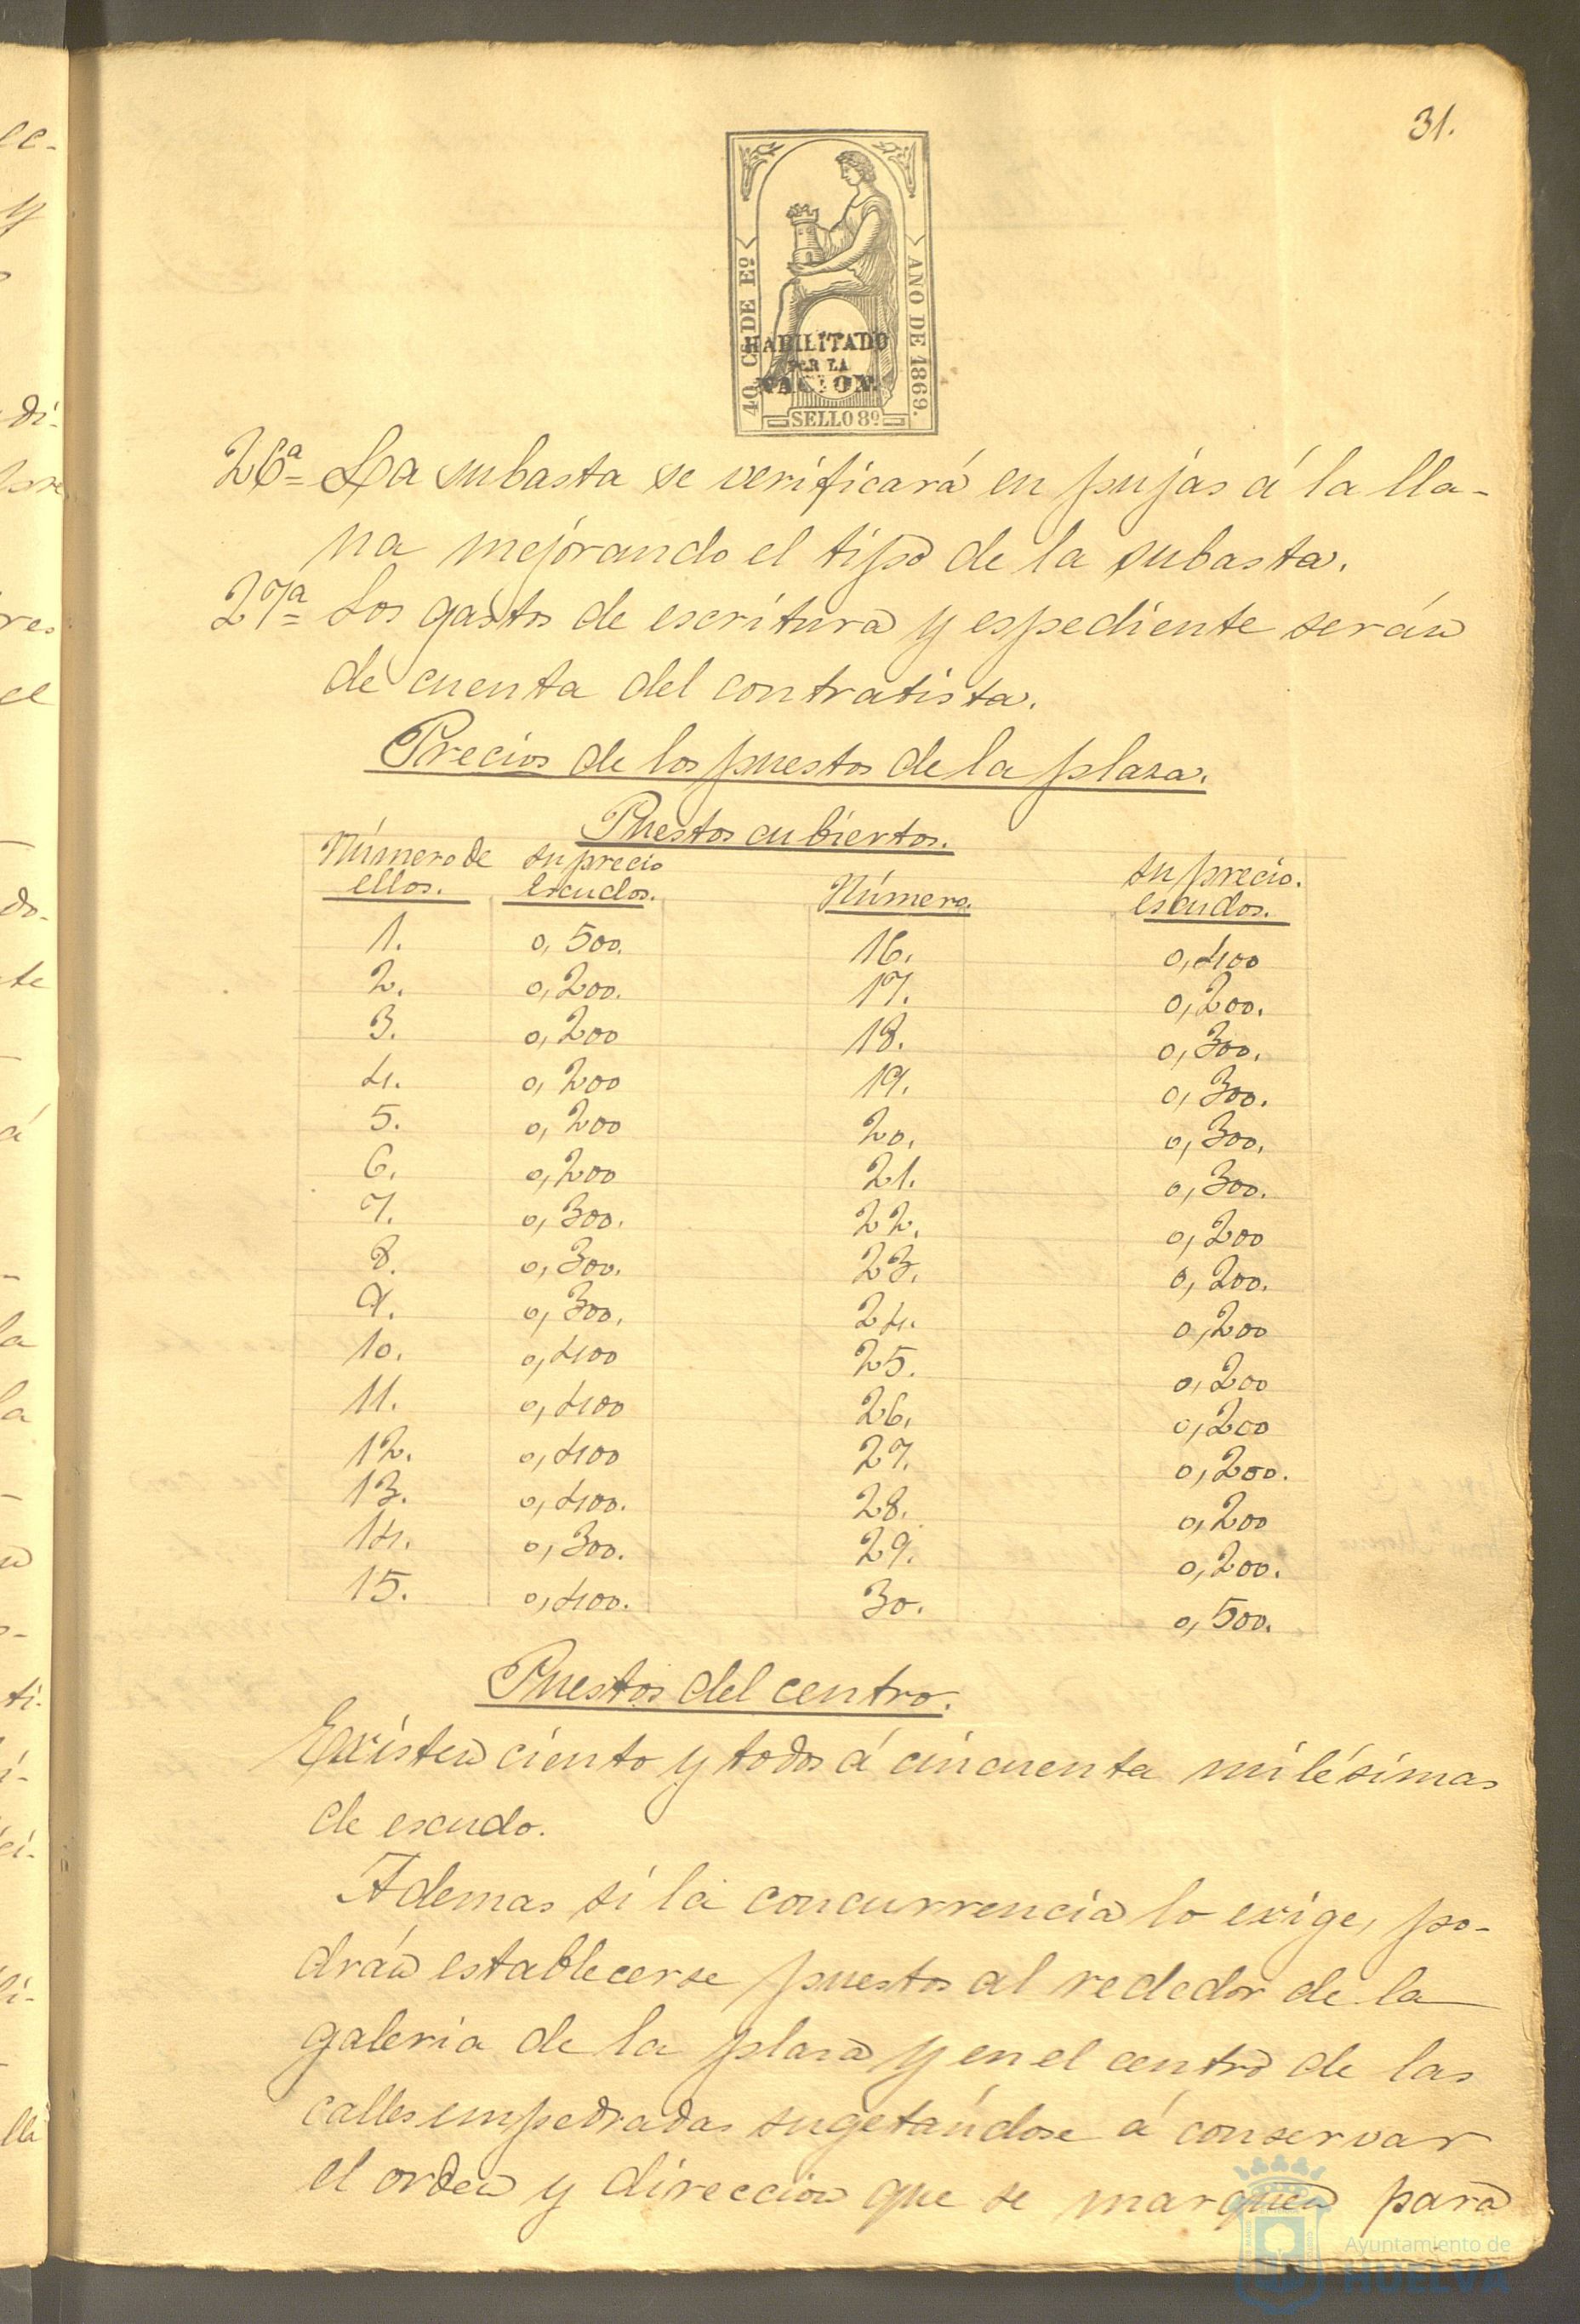 31.
40 Cs DE Eº
AÑO DE 1869.
HABILITADO
POR LA
NACION.
SELLO 8º
26ª= La subasta se verificará en pujas á la lla-
na mejorando el tipo de la subasta.
27ª= Los gastos de escritura y espediente serán
de cuenta del contratista.
Precios de los puestos de la plaza.
Puestos cubiertos.
Número de ellos. su precio Escudos. Número. su precio. escudos.
1. 0,500. 16. 0,400
2. 0,200. 17. 0,200.
3. 0,200 18. 0,300.
4. 0,200 19. 0,300.
5. 0,200 20. 0,300.
6. 0,200 21. 0,300.
7. 0,300. 22. 0,200
8. 0,300. 23. 0,200.
9. 0,300. 24. 0,200
10. 0,400 25. 0,200
11. 0,400 26. 0,200
12. 0,400 27. 0,200.
13. 0,400. 28. 0,200
14. 0,300. 29. 0,200.
15. 0,400. 30. 0,500.
Puestos del centro.
Existen ciento y todos á cincuenta milésimas
de escudo.
Ademas si la concurrencia lo exige, po-
drán establecerse puestos al rededor de la
galeria de la plaza y en el centro de las
calles empedradas sugetándose á conservar
el orden y direccion que se marquen para
Ayuntamiento de
HUELVA